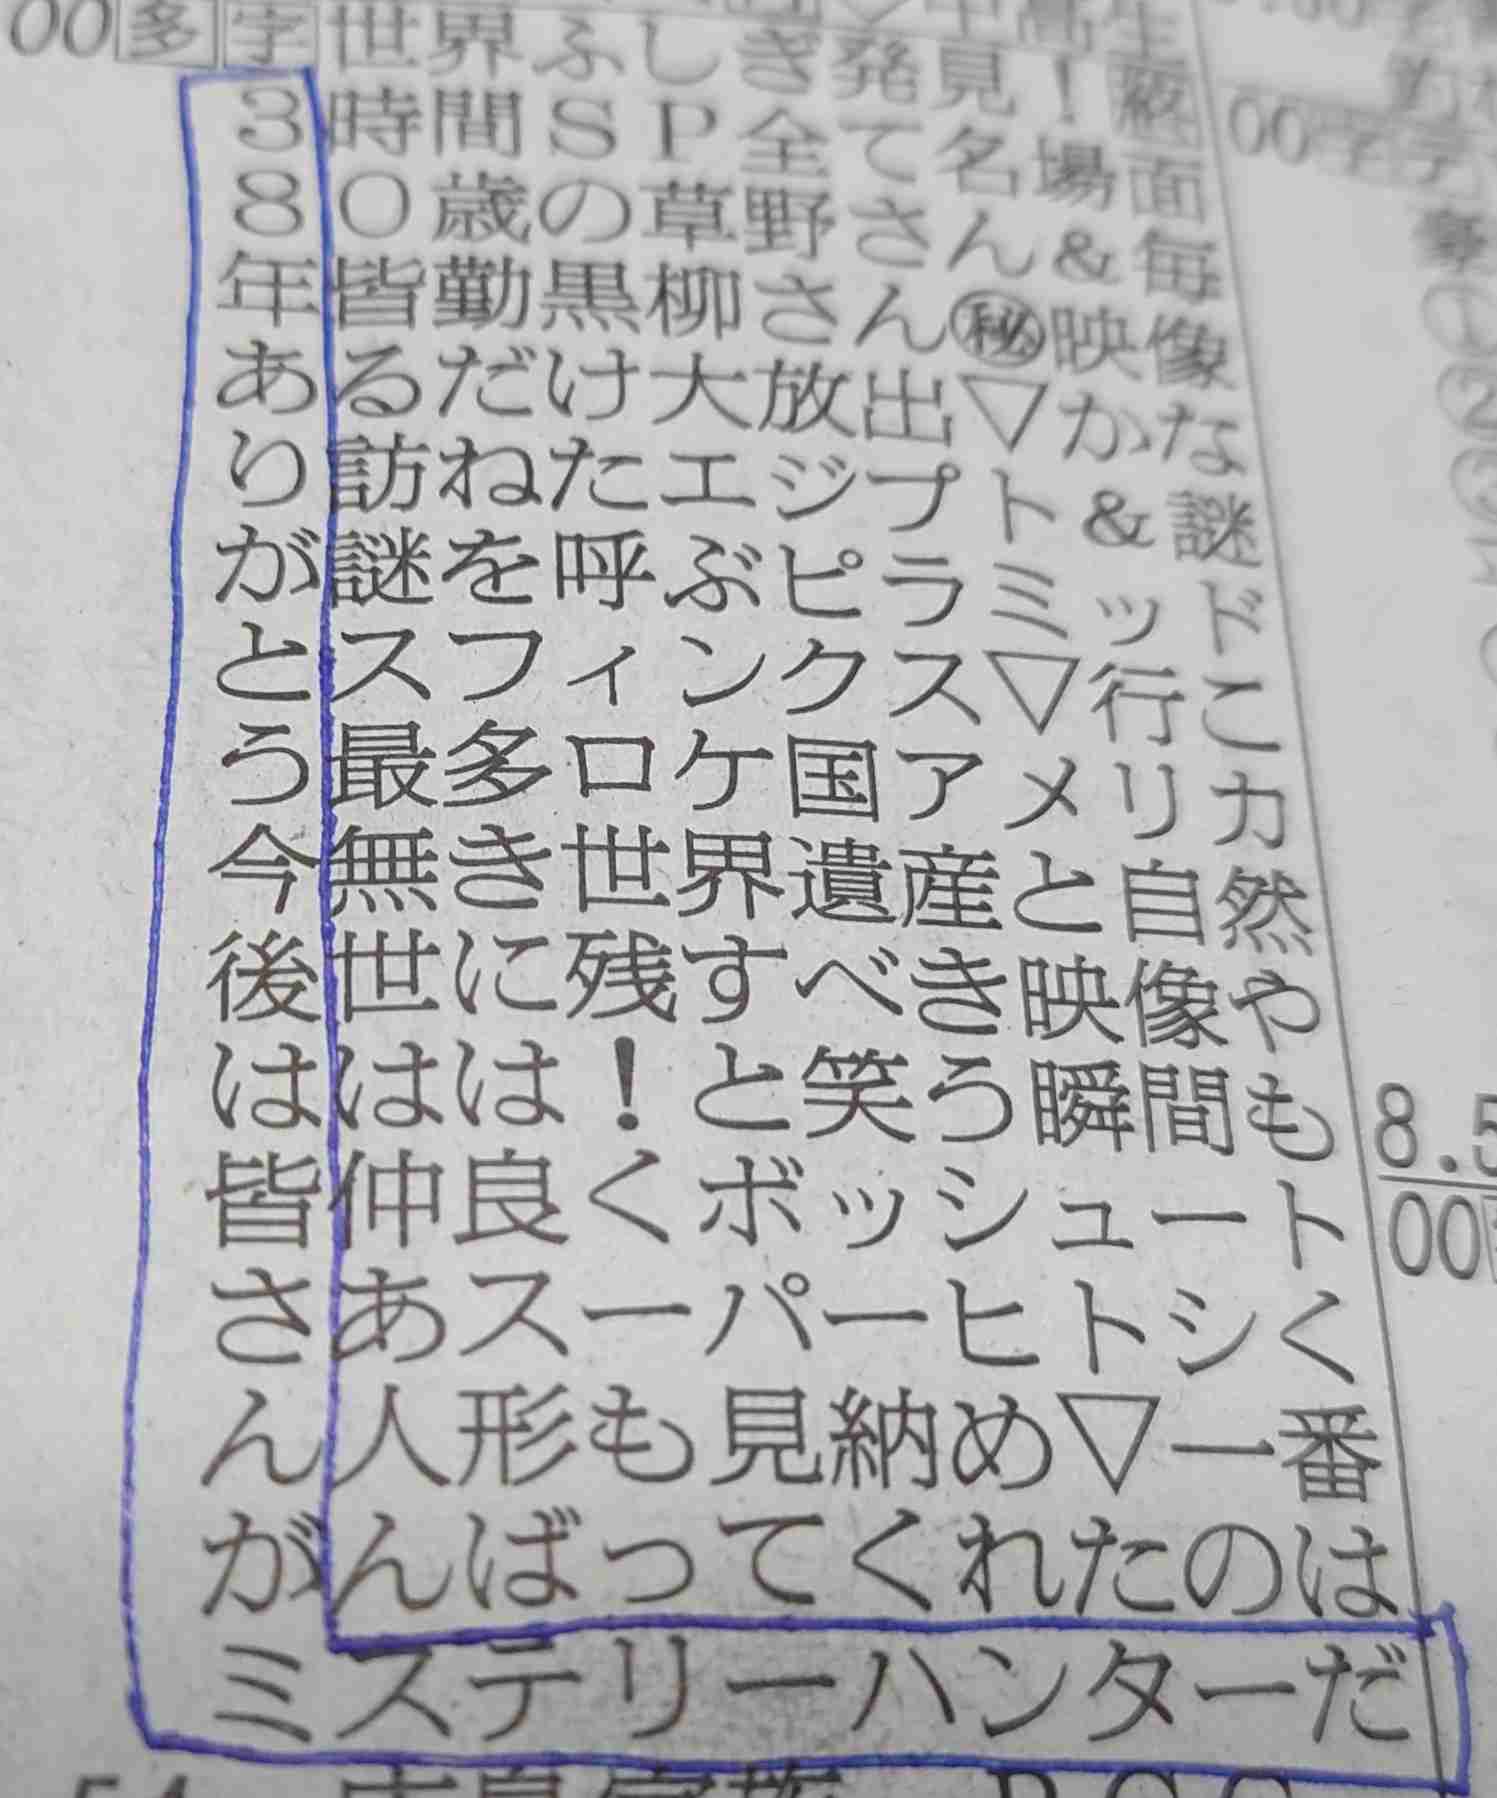 00 多 字 世界ふしぎ発見!終
3時間SP全て名場面
80歳の草野さん&毎
年皆勤黒柳さん㊙映像
あるだけ大放出▽かな
り訪ねたエジプト&謎
が謎を呼ぶピラミッド
とスフィンクス▽行こ
う最多ロケ国アメリカ
今無き世界遺産と自然
後世に残すべき映像や
ははは!と笑う瞬間も
皆仲良くボッシュート
さあスーパーヒトシく
ん人形も見納め▽一番
がんばってくれたのは
ミステリーハンターだ
00
8.5
00